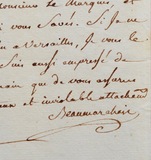 Monsieur le Marquis et
vous Savés. Si Je ne
à Versailles, Je vous le
Suis aussi empressé de
que de vous assurer
et inviolable attachement
Beaumarchais